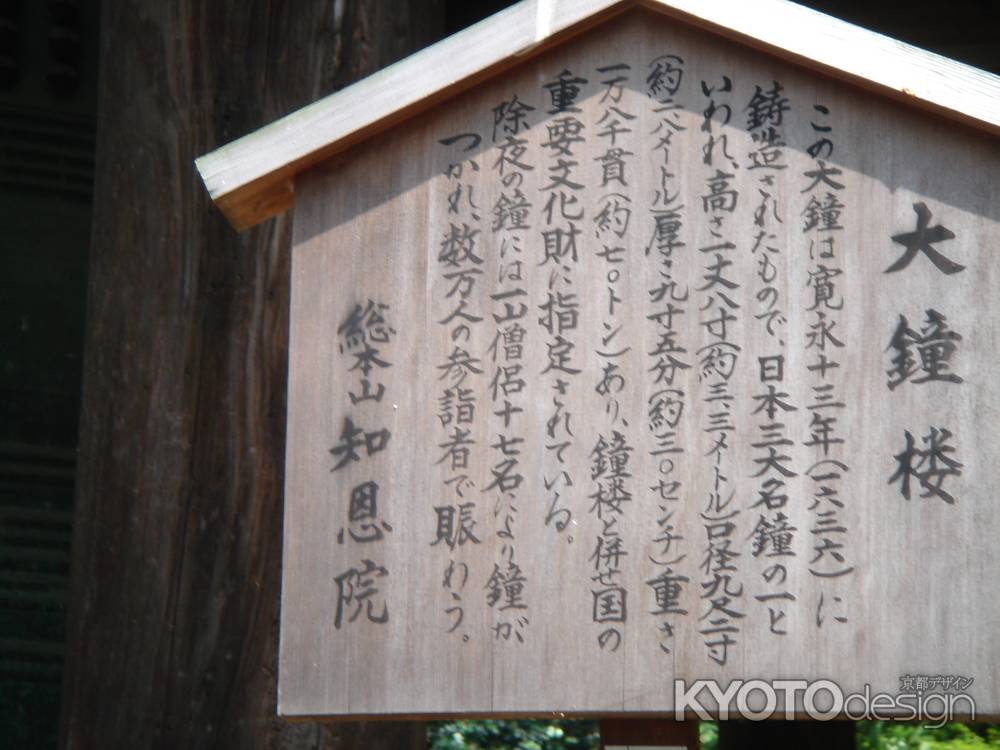 大鐘楼
この大鐘は寛永十三年(一六三六)に
鋳造されたもので、日本三大名鐘の一と
いわれ、高さ一丈八寸(約三.三メートル)口径九尺二寸
(約二.八メートル)厚さ九寸五分(約三〇センチ)重さ
一万八千貫(約七〇トン)あり、鐘楼と併せ国の
重要文化財に指定されている。
除夜の鐘には一山僧侶十七名により鐘が
つかれ、数万人の参詣者で賑わう。
総本山 知恩院
京都デザイン
KYOTOdesign